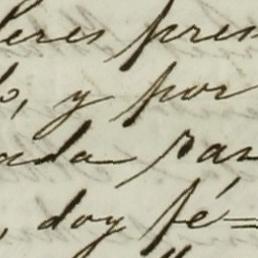 leres pres
o, y por
ada ran
, doy fé=